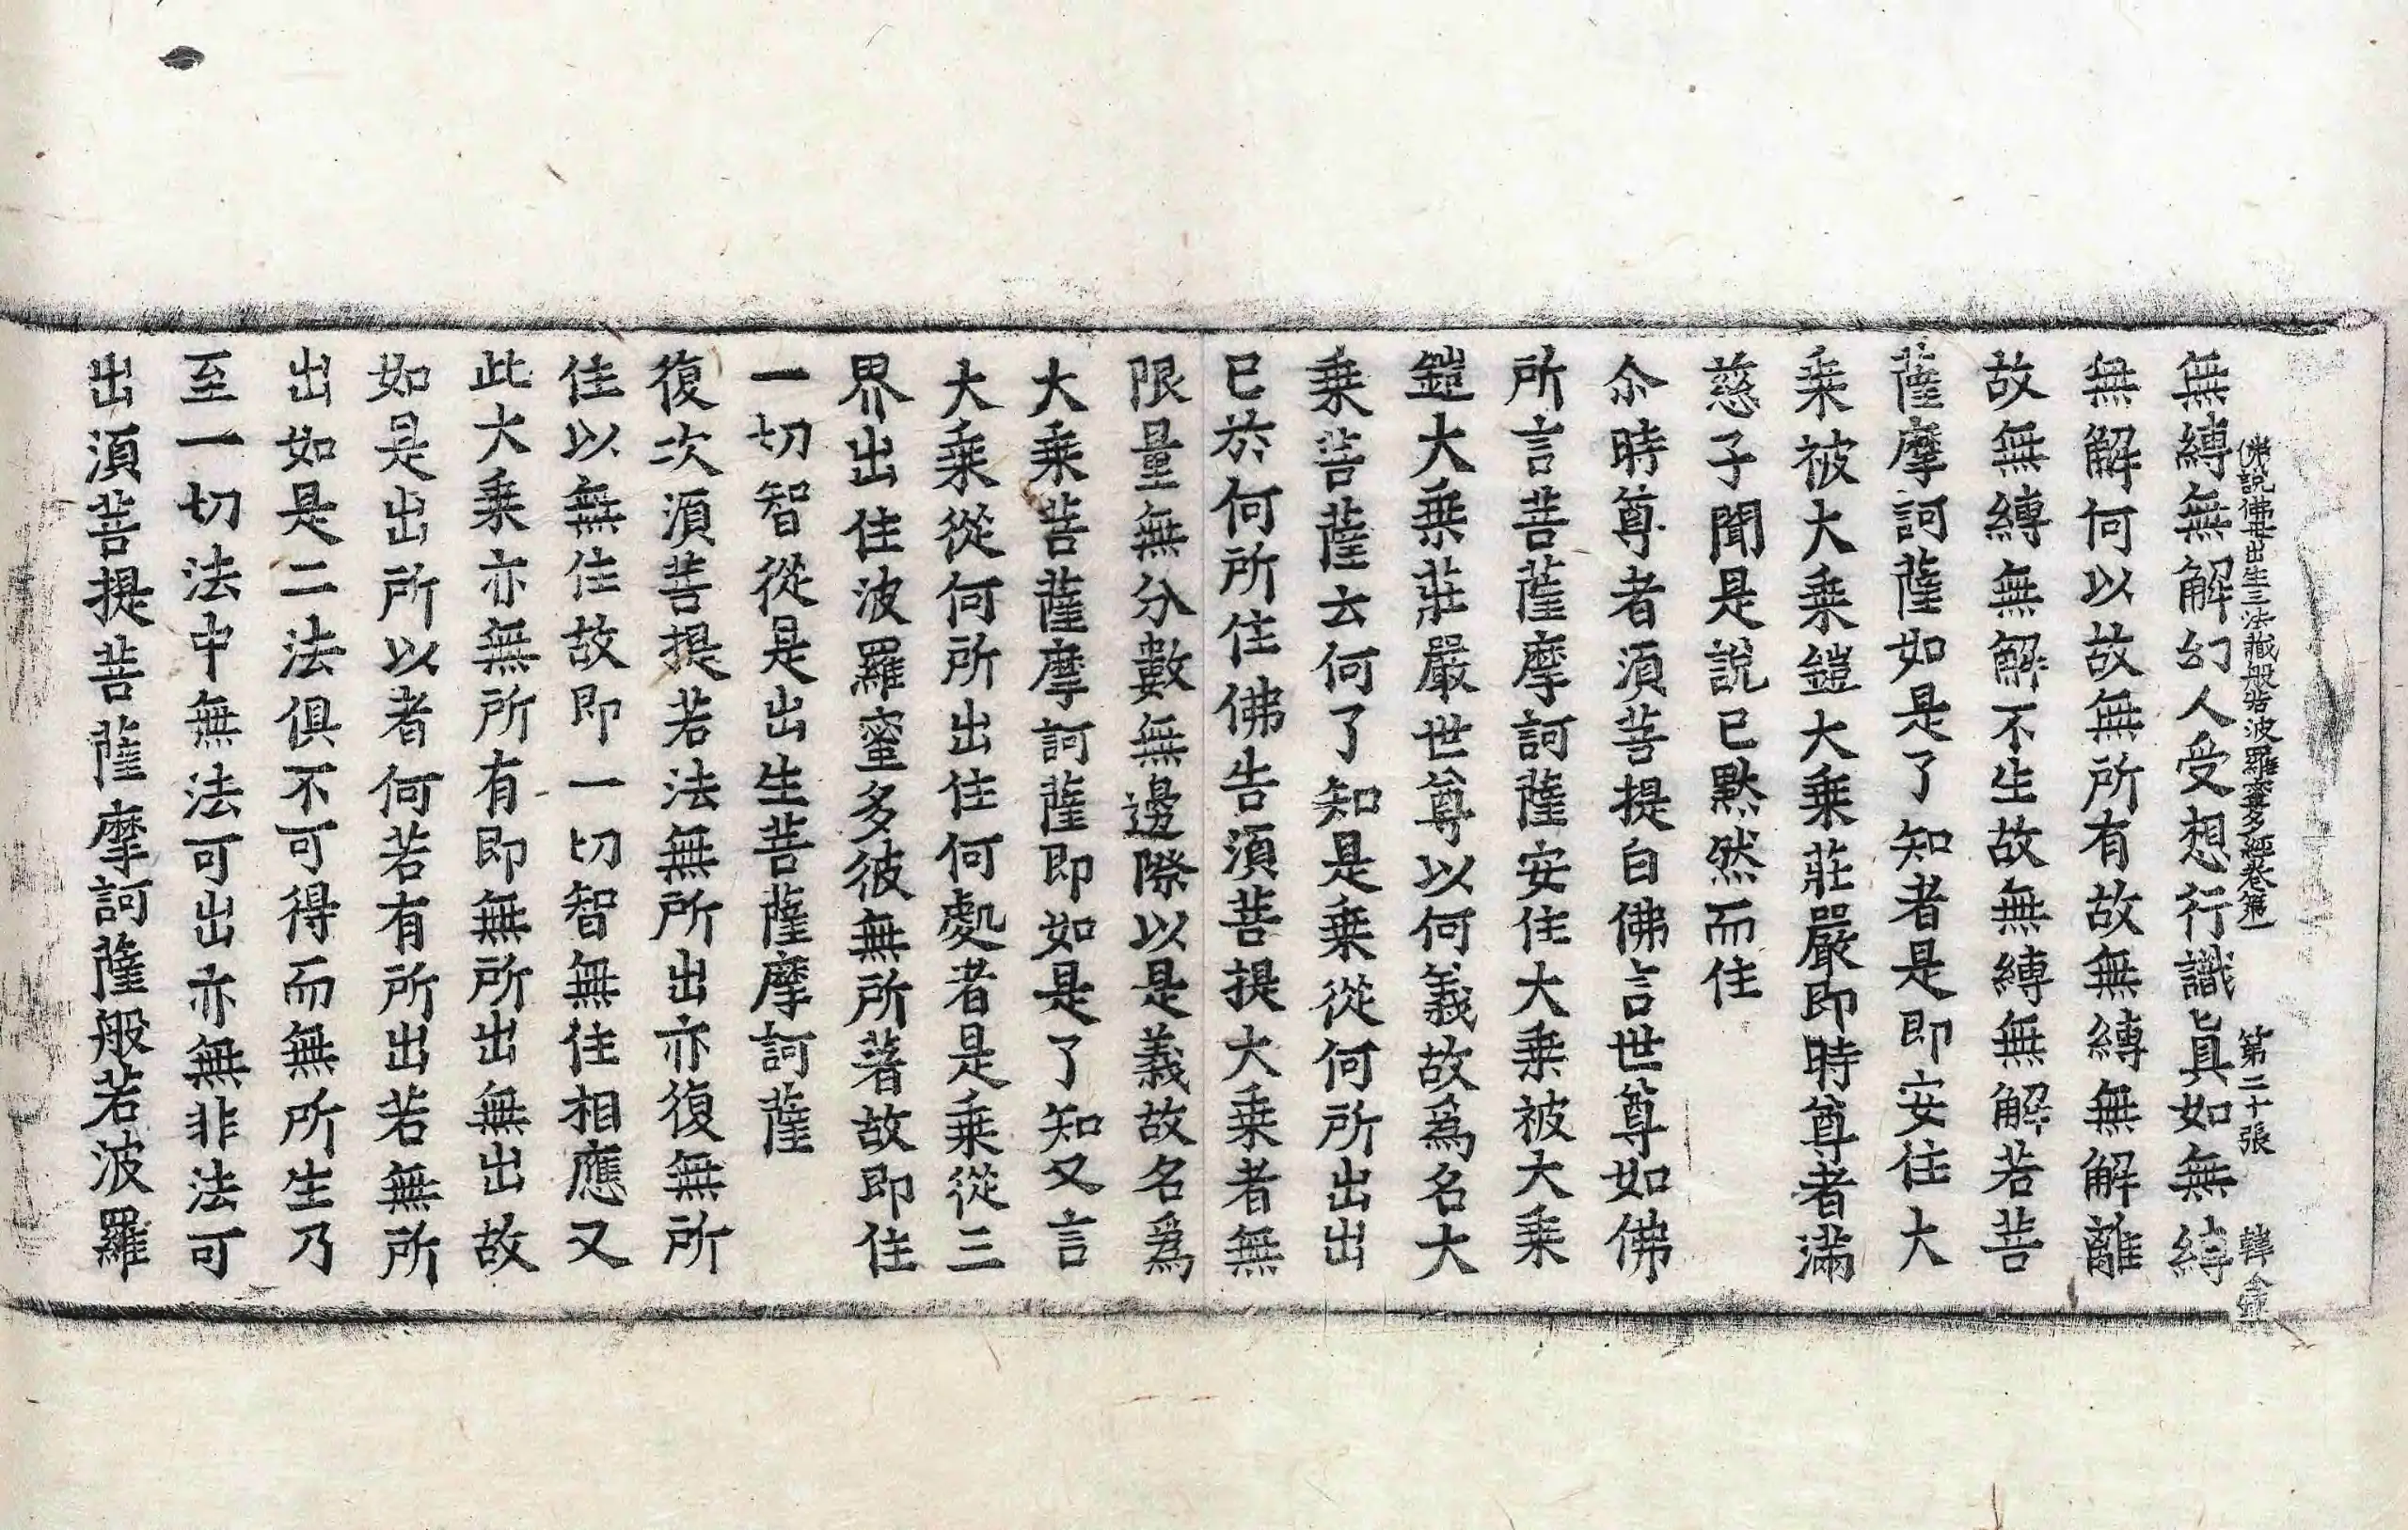 佛說佛母出生三法藏般若波羅蜜多經卷第一 第二十張 韓
無縛無解幻人受想行識眞如無縛
無解何以故無所有故無縛無解離
故無縛無解不生故無縛無解若菩
薩摩訶薩如是了知者是即安住大
乗被大乗鎧大乗莊嚴即時尊者滿
慈子聞是說已黙然而住
尒時尊者湏菩提白佛言世尊如佛
所言菩薩摩訶薩安住大乗被大乗
鎧大乗莊嚴世尊以何義故爲名大
乗菩薩云何了知是乗從何所出出
已於何所住佛告湏菩提大乗者無
限量無分數無邊際以是義故名爲
大乗菩薩摩訶薩即如是了知又言
大乗從何所出住何處者是乗從三
界出住波羅蜜多彼無所著故即住
一切智從是出生菩薩摩訶薩
復次湏菩提若法無所出亦復無所
住以無住故即一切智無住相應又
此大乗亦無所有即無所出無出故
如是出所以者何若有所出若無所
出如是二法俱不可得而無所生乃
至一切法中無法可出亦無非法可
出湏菩提菩薩摩訶薩般若波羅